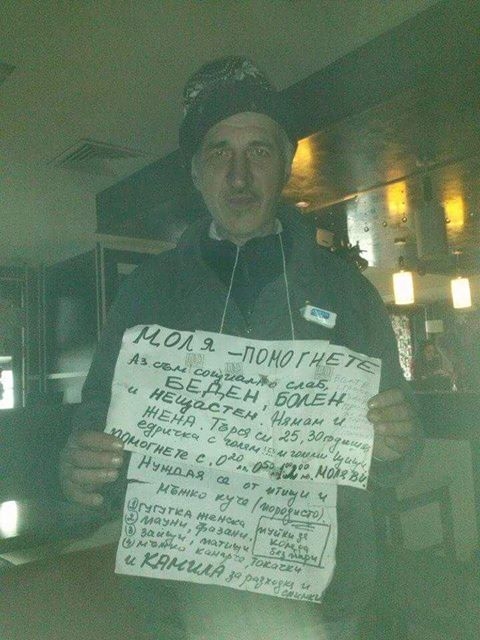 МОЛЯ – ПОМОГНЕТЕ
Аз съм социално слаб,
БЕДЕН, БОЛЕН
и НЕЩАСТЕН! Нямам и
ЖЕНА. Търся си 25, 30 годишна
едричка с голям и цици
ПОМОГНЕТЕ С. 0,20 0,50 МОЛЯ ВИ
Нуждая се от птици и
мъжко куче (породисто)
① ГУГУТКА ЖЕНСКА
② пауни, фазани,
③ зайци, патици
④ мъжко канарче, токачки
и КАМИЛА за разходка и
снимки